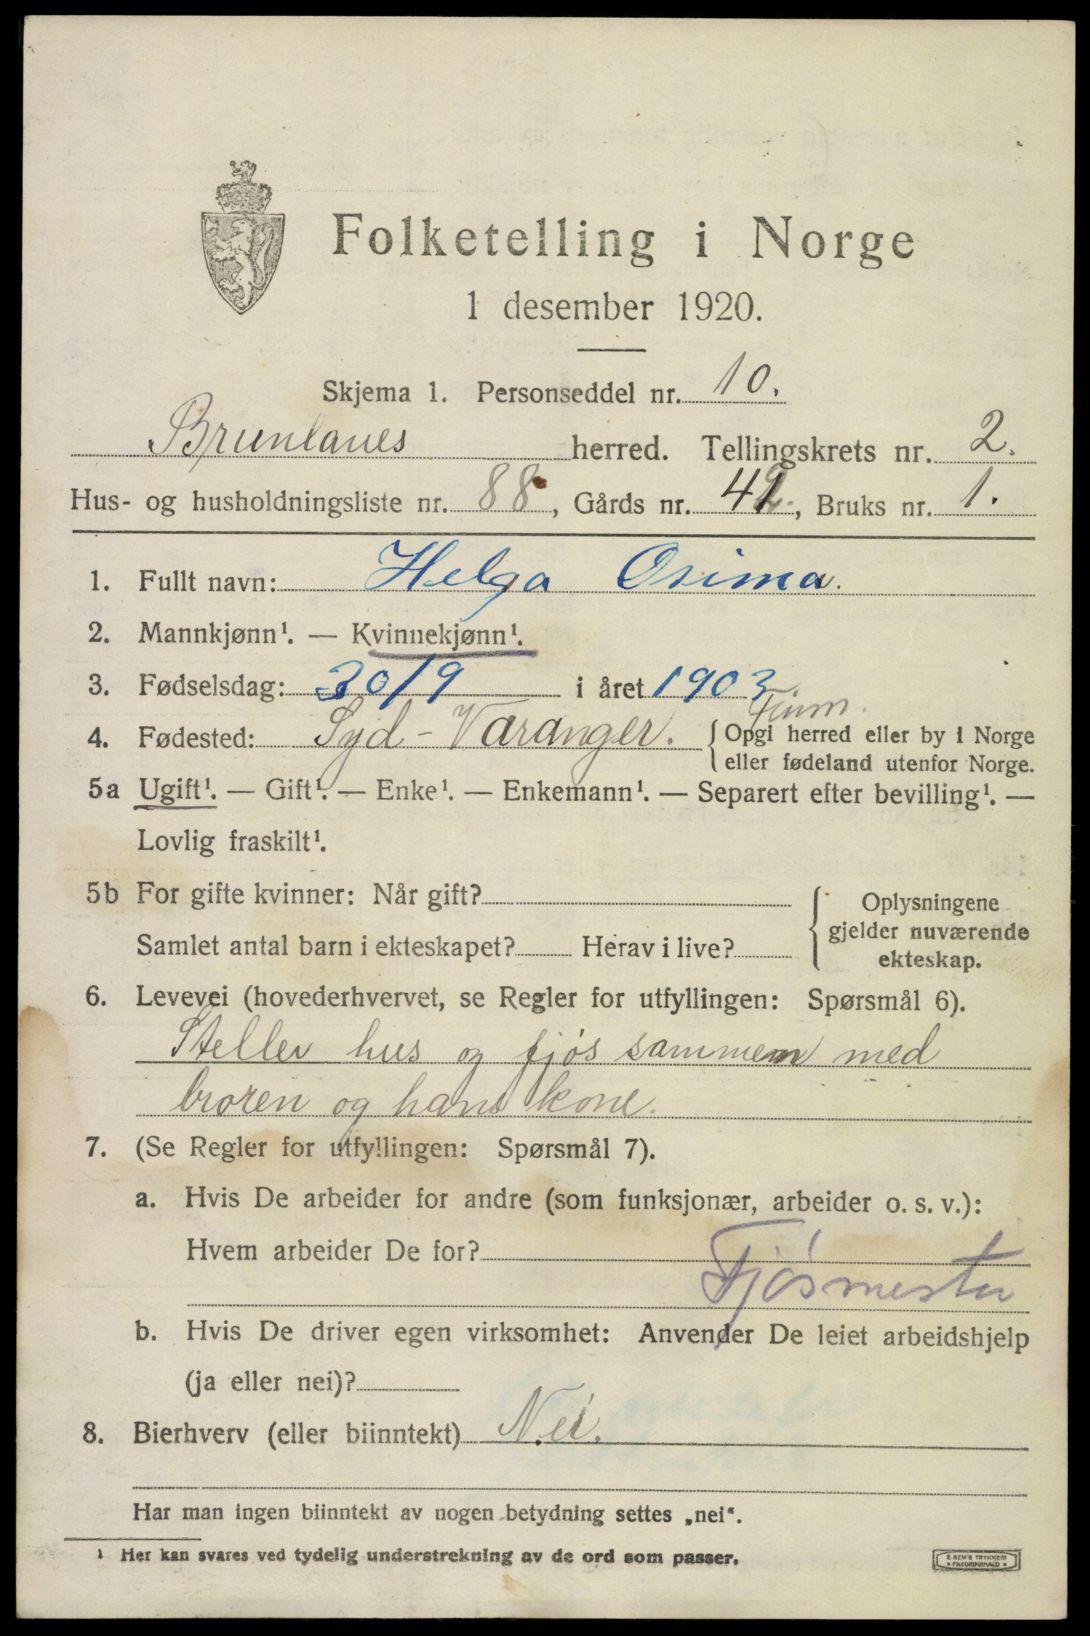 Folketelling i Norge
1 desember 1920.
Skjema 1. Personseddel nr. 10.
Brunlanes herred. Tellingskrets nr. 2.
Hus- og husholdningsliste nr. 88, Gårds nr. 42., Bruks nr. 1.
1. Fullt navn: Helga Osima.
2. Mannkjønn¹. — Kvinnekjønn¹.
3. Fødselsdag: 30/9 i året 1903
Finm.
4. Fødested: Syd-Varanger. {Opgi herred eller by i Norge
eller fødeland utenfor Norge.
5a Ugift¹. — Gift¹. — Enke¹. — Enkemann¹. — Separert efter bevilling¹. —
Lovlig fraskilt¹.
5b For gifte kvinner: Når gift?
Samlet antal barn i ekteskapet? Herav i live?
{Oplysningene
gjelder nuværende
ekteskap.
6. Levevei (hovederhvervet, se Regler for utfyllingen: Spørsmål 6).
Steller hus og fjøs sammen med
broren og hans kone.
7. (Se Regler for utfyllingen: Spørsmål 7).
a. Hvis De arbeider for andre (som funksjonær, arbeider o. s. v.):
Hvem arbeider De for?
Fjøsmester
b. Hvis De driver egen virksomhet: Anvender De leiet arbeidshjelp
(ja eller nei)?
8. Bierhverv (eller biinntekt) Nei.
Har man ingen biinntekt av nogen betydning settes „nei“.
¹ Her kan svares ved tydelig understrekning av de ord som passer.
E. SEM'S TRYKKERI
FREDRIKSHALD